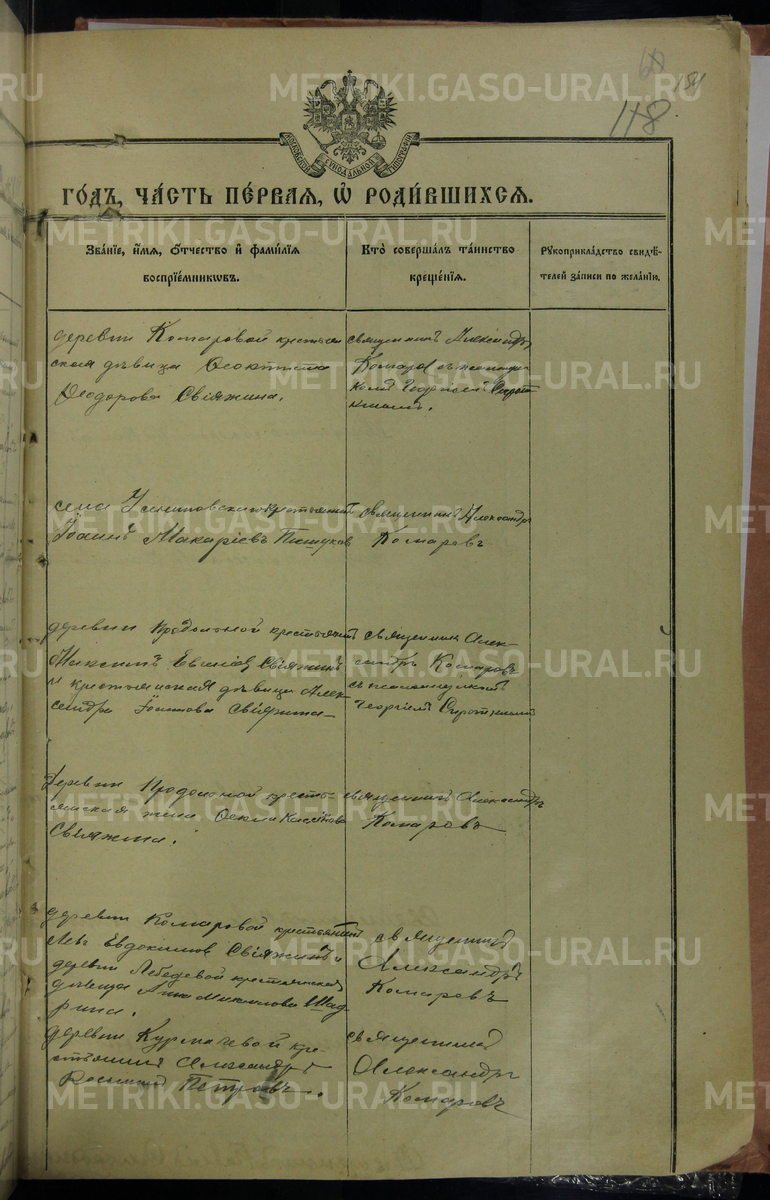 118
181
МОСКОВСКОЙ СѴНОДАЛЬНОЙ ТИПОГРАФІИ
ГОДЪ, ЧАСТЬ ПЕРВАЯ, Ѡ РОДИВШИХСЯ.
Званіе, имя, отчество и фамилія воспріемниковъ.
Кто совершалъ таинство крещенія.
Рукоприкладство свидѣтелей записи по желанію.
деревни Комаровой крестьян
ская дѣвица Ѳеоктиста
Ѳеодорова Свіяжина.
священникъ Александръ
Комаров съ псаломщи
комъ Георгіемъ Сирот
кинымъ.
села
Іоаннъ Макаріевъ
священникъ Александръ
Комаровъ
деревни Продольной крестьянинъ
Максимъ Свіяжинъ
и крестьянская дѣвица Алек
сандра Свіяжина
священникъ Алек-
сандръ Комаровъ
съ псаломщикомъ
Георгіемъ Сироткинымъ
деревни Продольной кресть
янская жена Ѳекла
Свіяжина.
священникъ Александръ
Комаровъ
деревни Комаровой крестьянинъ
Левъ Евдокимов Свіяжинъ и
деревни Лебедевой крестьянская
дѣвица Анна Шад
рина.
священникъ
Александръ
Комаровъ
деревни Курмачевой кре-
стьянинъ Александръ
Петровъ.
священникъ
Александръ
Комаровъ
METRIKI.GASO-URAL.RU